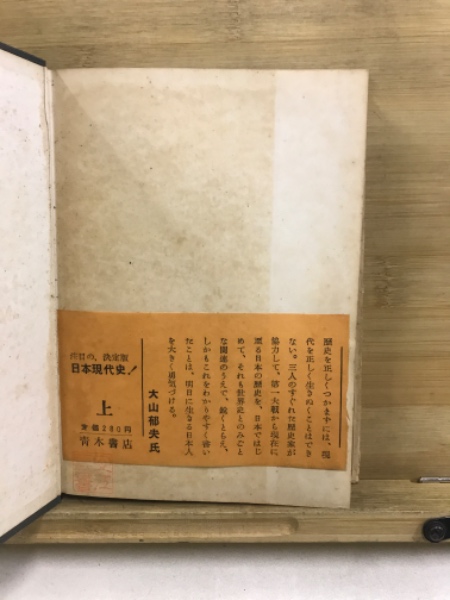 歴史を正しくつかまずには、現
代を正しく生きぬくことはでき
ない。三人のすぐれた歴史家が
協力して、第一大戦から現在に
至る日本の歴史を、日本ではじ
めて、それも世界史とのみごと
な関連のうえで、鋭くとらえ、
しかもこれをわかりやすく書い
たことは、明日に生きる日本人
を大きく勇気づける。
大山郁夫氏
注目の、決定版
日本現代史!
上
定価280円
青木書店